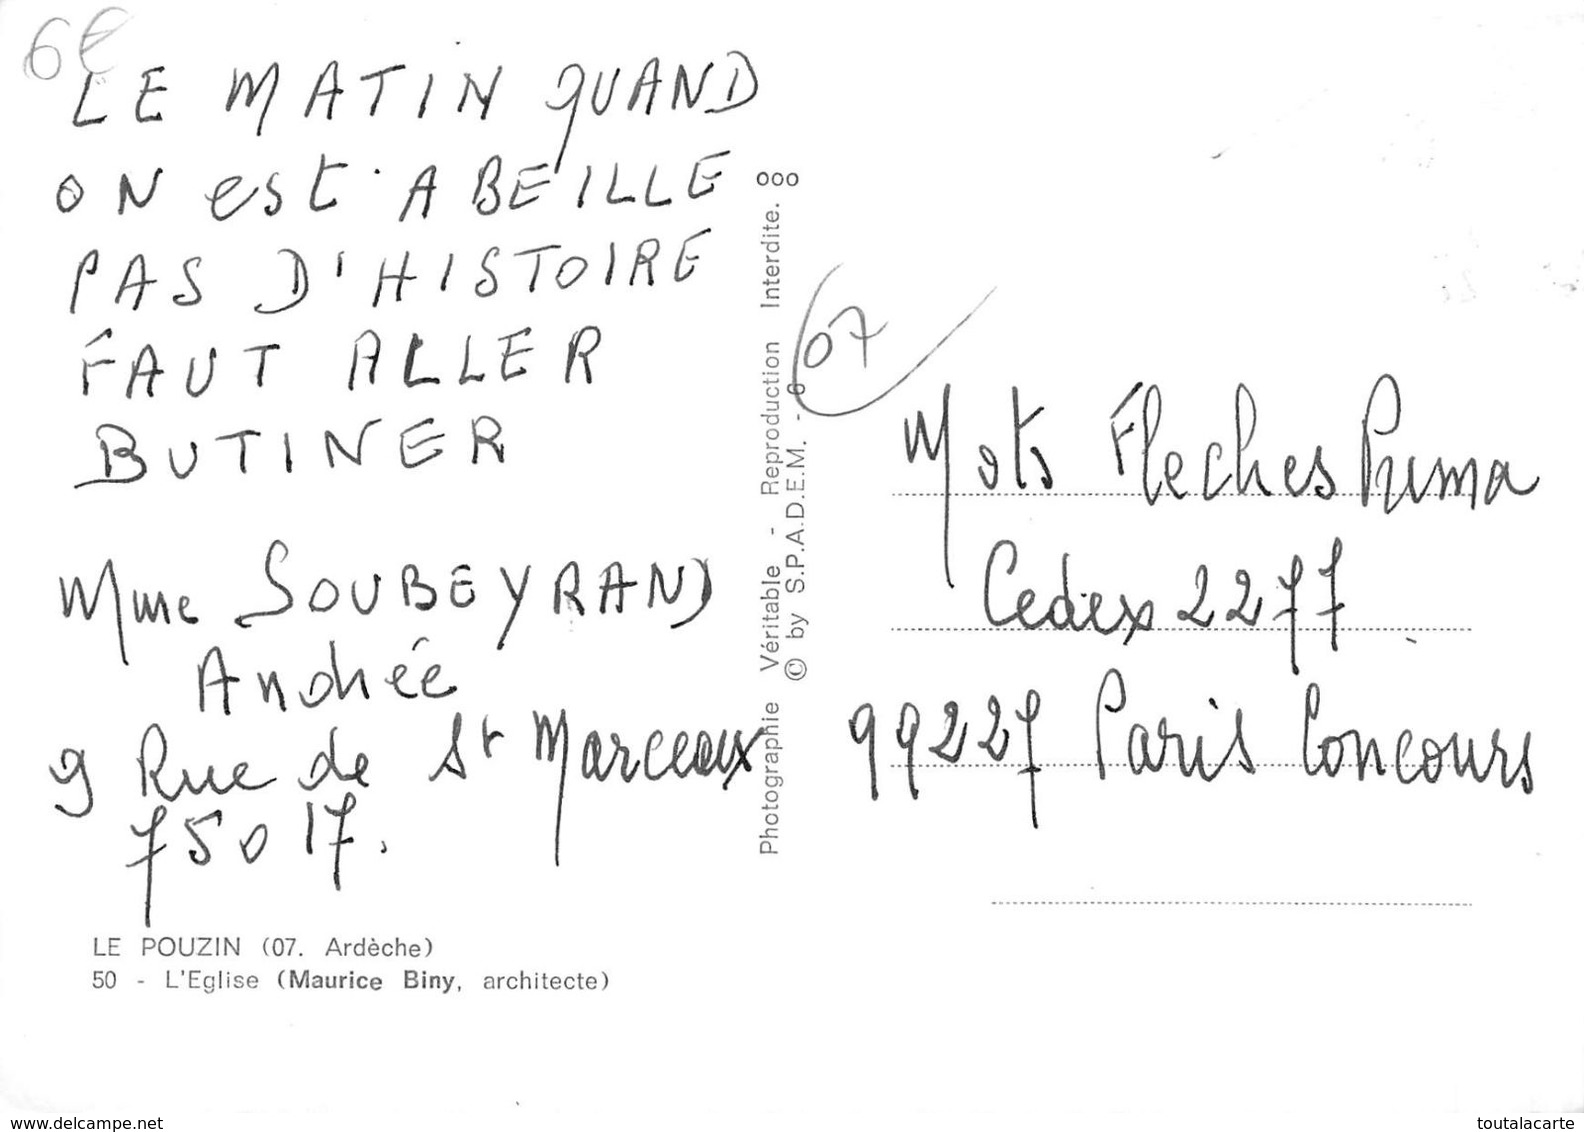 6€
LE MATIN QUAND
ON est ABEILLE
PAS D'HISTOIRE
FAUT ALLER
BUTINER
Mme SOUBEYRAND
Andrée
9 Rue de St Marceaux
75017.
LE POUZIN (07. Ardèche)
50 - L'Eglise (Maurice Biny, architecte)
Photographie Véritable - Reproduction Interdite.
© by S.P.A.D.E.M. - 6 000
07
Mots Fleches Prima
Cedex 2277
99227 Paris Concours
My-delcampe.net
toutalacarte